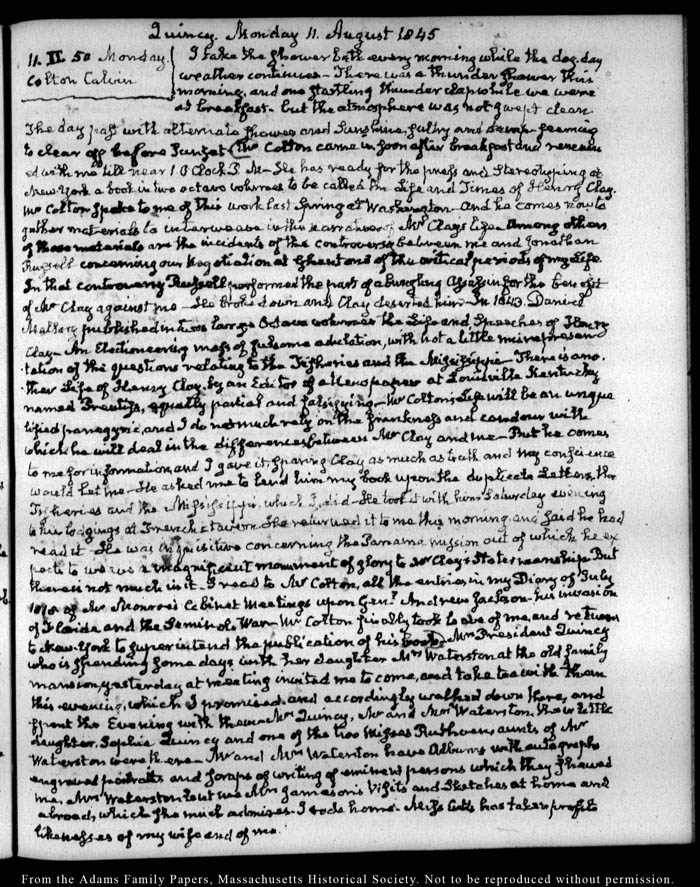 Quincy. Monday 11. August 1845
11. II. 50 Monday.
Colton Calvin
I take the shower bath every morning while the dog-day
weather continues - There was a thunder shower this
morning, and one startling thunder clap while we were
at breakfast - but the atmosphere was not swept clear
The day past with alternate showers and Sunshine, sultry and damp seeming
to clear off before Sunset. Mr Colton came in soon after breakfast and remain
ed with me till near 1. O'Clock P.M - He has ready for the press and Stereotyping at
New-York a book in two octavo volumes to be called the Life and Times of Henry Clay.
Mr Colton spoke to me of this work last Spring at Washington - And he comes now to
gather materials to interweave in the narrative of Mr Clay's Life. Among others
of these materials are the incidents of the controversy between me and Jonathan
Russell concerning our Negotiation at Ghent one of the critical periods of my Life
In that controversy Russell performed the part of a bungling Assassin for the benefit
of Mr Clay against me - He broke down and Clay deserted him - In 1843. Daniel
Mallory published in two large Octavo volumes the Life and Speeches of Henry
Clay - An Electioneering mass of fulsome adulation, with not a little misrepresen
tation of the questions relating to the Fisheries and the Mississippi - There is ano.
ther Life of Henry Clay, by an Editor of a Newspaper at Louisville Kentucky
named Prentiss, equally partial and falsifying - Mr Colton's Life will be an unqua
lified panegyric, and I do not much rely on the frankness and candour with
which he will deal in the differences between Mr Clay and me - But he comes
to me for information, and I gave it, sparing Clay as much as truth and my conscience
would let me - He asked me to lend him my book upon the duplicate Letters, the
Fisheries and the Mississippi, which I did - He took it with him Saturday evening
to his lodgings at French's tavern. He returned it to me this morning, and said he had
read it - He was inquisitive concerning the Panama mission out of which he ex
pects to a magnificent monument of glory to Mr Clay's Statesmanship. But
there is not much in it - I read to Mr Colton, all the entries in my Diary of July
1818 of Mr Monroe's Cabinet Meetings upon Genl. Andrew Jackson's invasion
of Florida and the Seminole War - Mr Colton finally took leave of me, and returns
to New-York to superintend the publication of his book. Mrs President Quincy
who is spending some days with her daughter Mrs Waterston at the old family
mansion, yesterday at meeting invited me to come, and take tea with them
this evening, which I promised, and accordingly walked down there, and
spent the Evening with them - Mrs Quincy, Mr and Mrs Waterston, their little
daughter, Sophia Quincy and one of the two Misses Ruthven, aunts of Mr
Waterston were there - Mr and Mrs Waterston have Albums with autographs
engraved portraits and scraps of writing of eminent persons which they shewed
me. Mrs Waterston lent me Mrs Jameson's Visits and Sketches at home and
abroad, which she much admires. I rode home. Miss has taken profile
likenesses of my wife and of me.
From the Adams Family Papers, Massachusetts Historical Society. Not to be reproduced without permission.